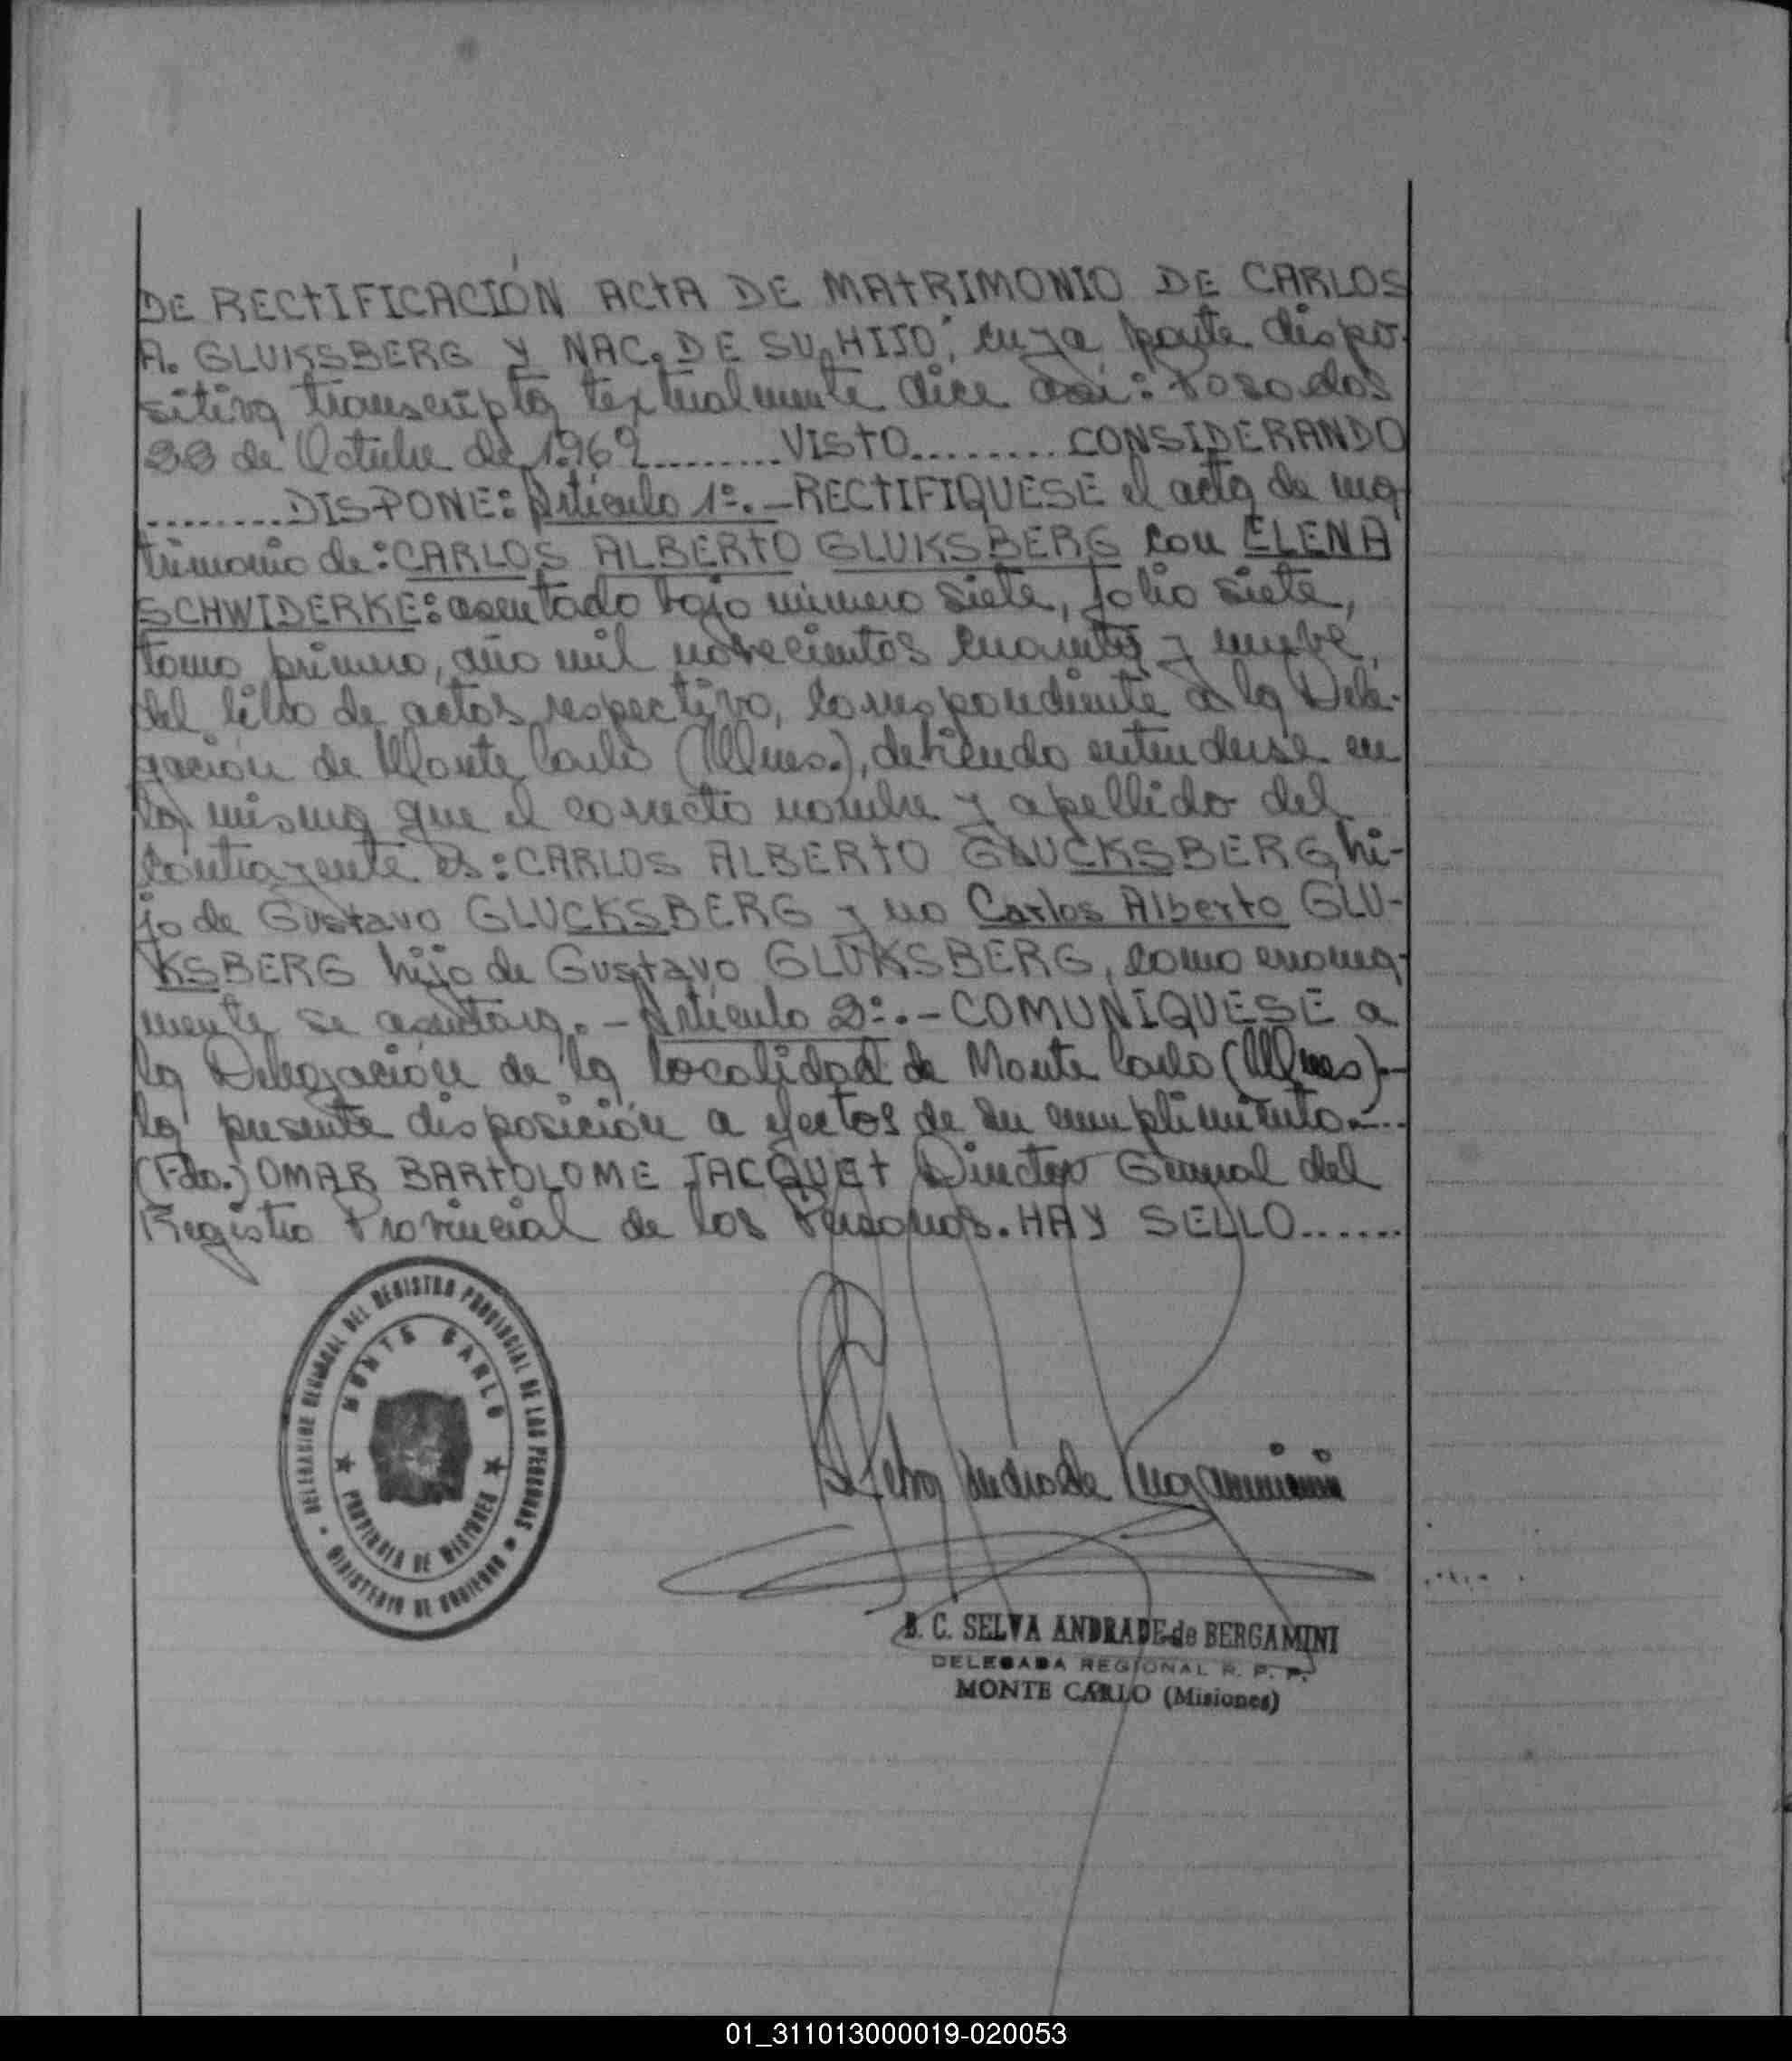 DE RECTIFICACIÓN ACTA DE MATRIMONIO DE CARLOS
A. GLUKSBERG Y NAC. DE SU HIJO", cuya parte dispo-
sitiva transcripta textualmente dice así: Posadas
23 de Octubre de 1.969.........VISTO.........CONSIDERANDO
.........DISPONE: Artículo 1º.-RECTIFIQUESE el acta de ma
trimonio de: CARLOS ALBERTO GLUKSBERG con ELENA
SCHWIDERKE: asentado bajo número siete, folio siete,
tomo primero, año mil novecientos cuarenta y nueve,
del libro de actas respectivo, correspondiente a la Dele-
gación de Monte Carlo (Mnes.), debiendo entenderse en
la misma que el correcto nombre y apellido del
contrayente es: CARLOS ALBERTO GLUCKSBERG, hi-
jo de Gustavo GLUCKSBERG y no Carlos Alberto GLU-
KSBERG hijo de Gustavo GLUKSBERG, como erronea-
mente se asentara.- Artículo 2º.- COMUNÍQUESE a
la Delegación de la localidad de Monte Carlo (Mnes).-
la presente disposición a efectos de su cumplimiento.-..
(Fdo.) OMAR BARTOLOME JACQUET Director General del
Registro Provincial de las Personas. HAY SELLO.......
DELEGACION REGIONAL DEL REGISTRO PROVINCIAL DE LAS PERSONAS
MONTE CARLO
PROVINCIA DE MISIONES
MINISTERIO DE GOBIERNO
Selva Andrade Bergamini
B. C. SELVA ANDRADE de BERGAMINI
DELEGADA REGIONAL R. P. P.
MONTE CARLO (Misiones)
01_311013000019-020053